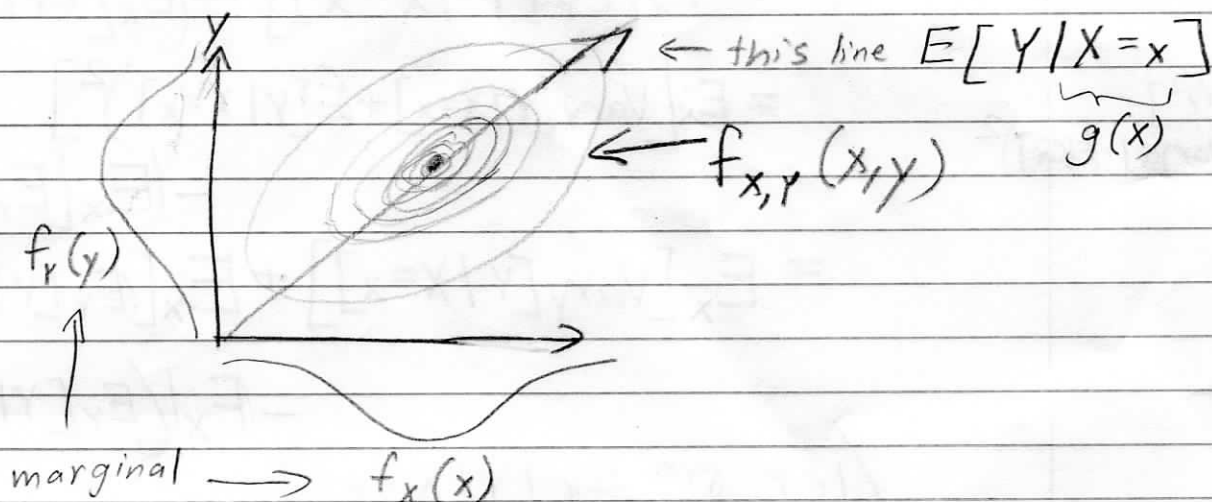 Y
← this line E[Y|X=x]
g(x)
← f_{X,Y}(x,y)
f_Y(y)
marginal → f_X(x)